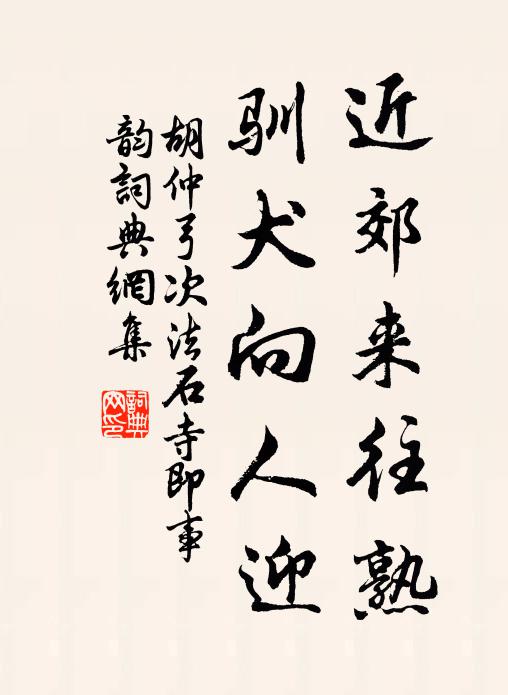 近郊来往熟
驯犬向人迎
胡仲弓次法石寺即事
韵词典網集
詞典
网印